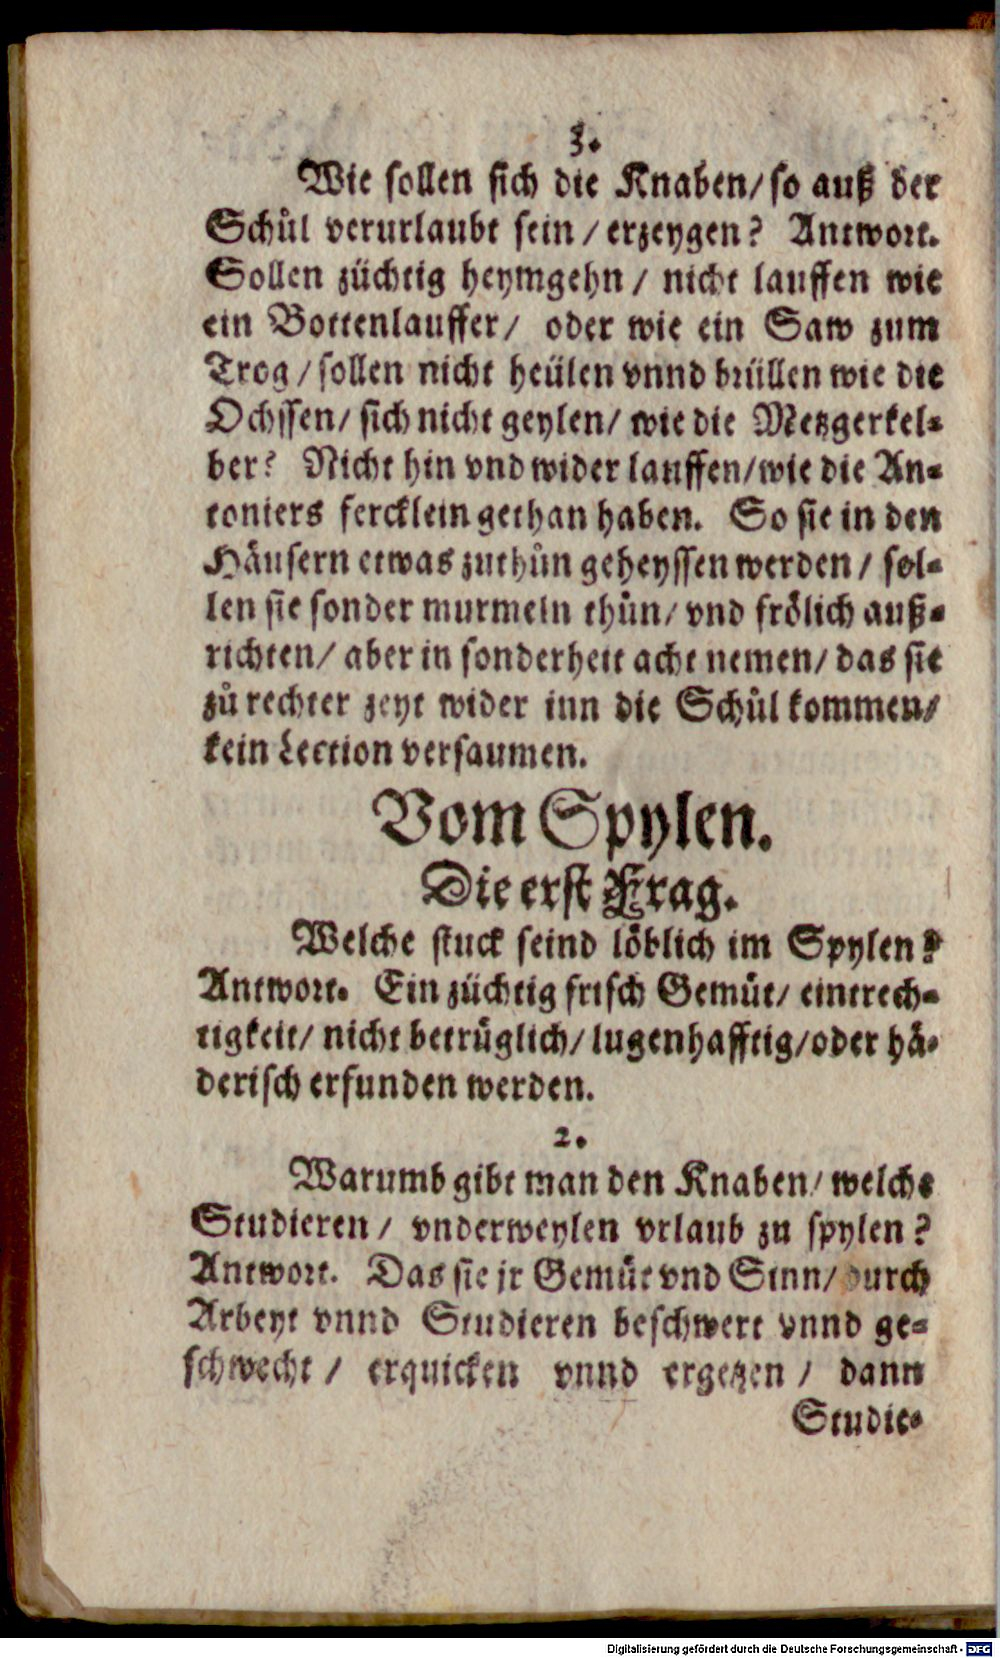 3.
Wie sollen sich die Knaben/ so auß der
Schůl verurlaubt sein / erzeygen? Antwort.
Sollen züchtig heymgehn / nicht lauffen wie
ein Bottenlauffer/ oder wie ein Saw zum
Trog / sollen nicht heülen vnnd brüllen wie die
Ochssen/ sich nicht geylen/ wie die Metzgerkel-
ber? Nicht hin vnd wider lauffen/wie die An-
toniers fercklein gethan haben. So sie in den
Häusern etwas zuthůn geheyssen werden / sol-
len sie sonder murmeln thůn/ vnd frölich auß-
richten/ aber in sonderheit acht nemen/ das sie
zů rechter zeyt wider inn die Schůl kommen/
kein Lection versaumen.
Vom Spylen.
Die erst Frag.
Welche stuck seind löblich im Spylen?
Antwort. Ein züchtig frisch Gemüt/ eintrech-
tigkeit/ nicht betrüglich/ lugenhafftig/oder hä-
derisch erfunden werden.
2.
Warumb gibt man den Knaben/ welche
Studieren / vnderweylen vrlaub zu spylen?
Antwort. Das sie jr Gemüt vnd Sinn/ durch
Arbeyt vnnd Studieren beschwert vnnd ge-
schwecht / erquicken vnnd ergetzen / dann
Studie-
Digitalisierung gefördert durch die Deutsche Forschungsgemeinschaft - DFG